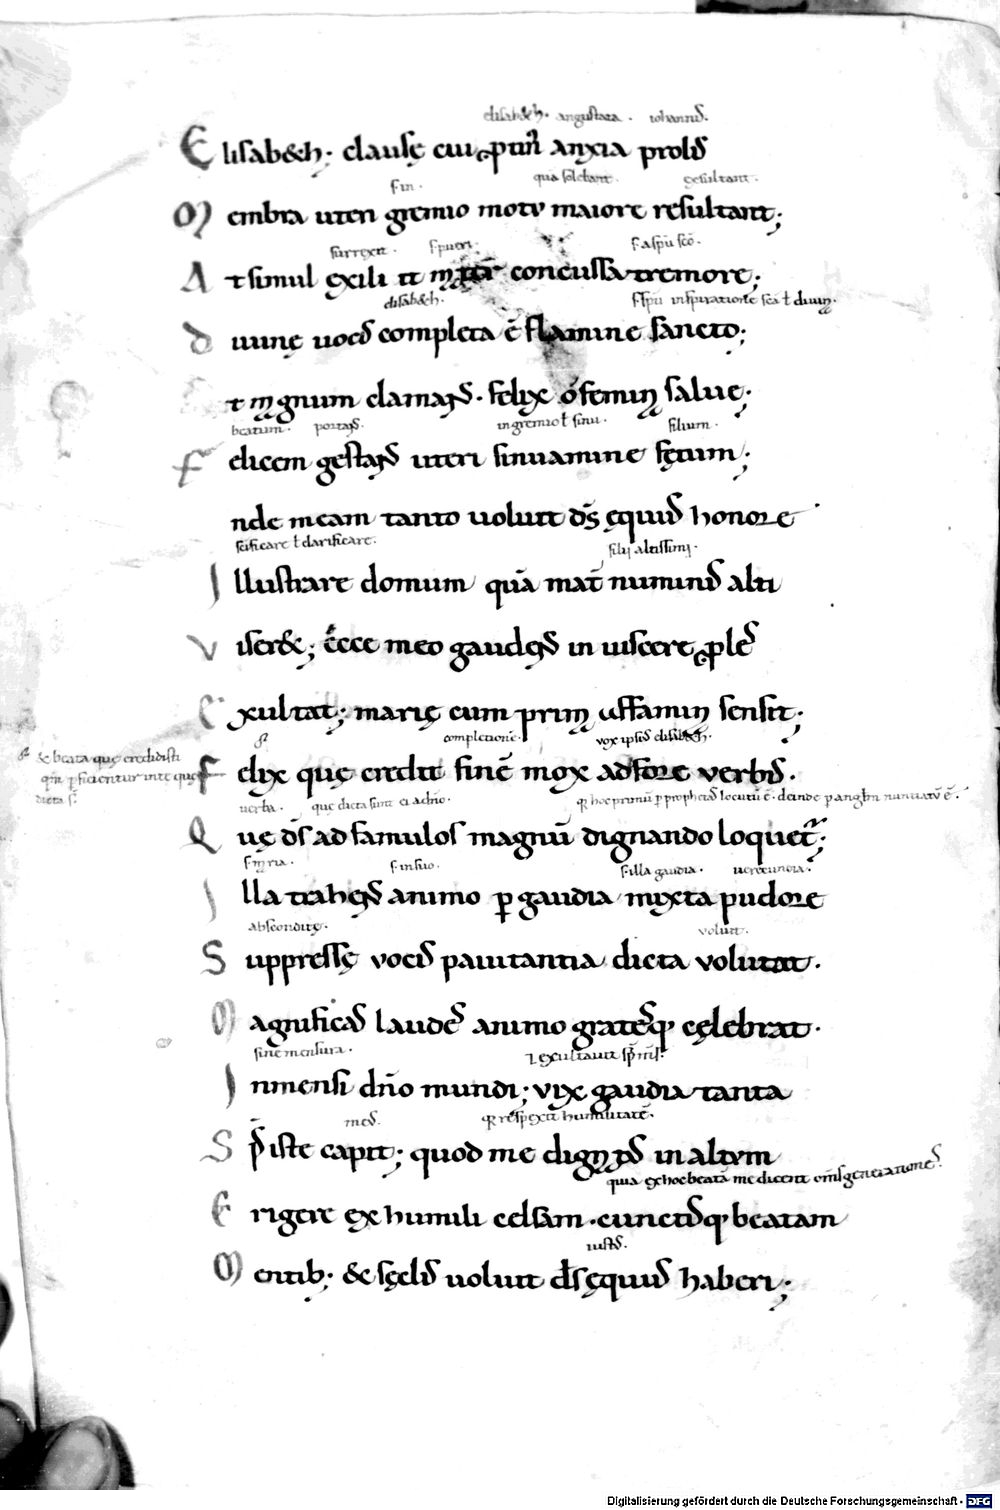 elisab&h. angustata. iohannis.
Elisab&h; clausę cui cp̄tim anxia prolis
s in. qua solebant. exsultant.
Membra uteri gremio motv maiore resultant;
surrexit. s pueri. s a spū scō.
At simul exili it mr̄ concussa tremore;
elisab&h. s spū inspiratione scā ł diuin
diuinę uocis completa ē flamine sancto;
Et magnum clamans. felix ó femina salue;
beatum. portans. in gremio ł sinu. filium.
Felicem gestans uteri sinuamine fętum;
nde meam tanto uoluit dš ęquus honore
scificare ł clarificare. filij altissimi.
Illustrare domum quā mat̄ numinis alti
Viser&; ecce meo gaudens in uiscere ples
Exultat; marię cum prima uffamina sensit;
completione. vox ipsius elisab&h.
& beata que credidisti
qm̄ pficientur in te quę
dicta s̄
Felix quę credit finē mox adfore verbis.
uerba. que dicta sunt ei a dño. q hoc primū p prophetas locutū ē. deinde p anglm nuntiatū ē.
Quę dš ad famulos magnū dignando loquet̄;
s maria. s in suo. s illa gaudia. uerecundia.
Illa trahens animo p gaudia mixta pudore
abscondite. voluit.
Suppressę vocis pauitantia dicta volutat.
Magnificas laudes animo gratesq cęlebrat.
sine mensura. & exultauit sp̄s ms̄.
Inmensi dño mundi; vix gaudia tanta
meus. q respexit humilitatē.
Sp̄s iste capit; quod me dignatus in altvm
quia ex hoc beatā me dicent om̄s generationes.
Erigere ex humili celsam. cunctisq beatam
iustus.
Mentib; & sęclis uoluit ds ęquus haberi;
Digitalisierung gefördert durch die Deutsche Forschungsgemeinschaft - DFG